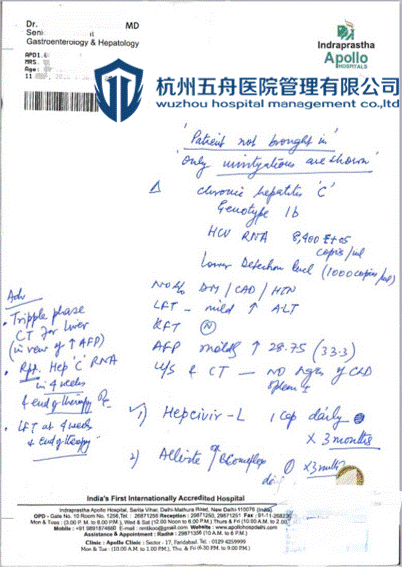 Dr. MD
Seni
Gastroenterology & Hepatology
APD1.
MRS.
Age:
11
Indraprastha
Apollo
HOSPITALS
杭州五舟医院管理有限公司
wuzhou hospital management co.,ltd
'Patient not brought in'
'only investigations are shown'
Δ chronic hepatitis 'C'
Genotype 1b
HCV RNA 8,900 E+05
copies/ml
Lower Detection level (1000 copies/ml)
No H/o DM / CAD / HTN
LFT - mild ↑ ALT
KFT (N)
AFP mildly ↑ 28.75 (33.3)
U/S & CT — No signs of CLD
spleen
Adv
• Tripple phase
CT for liver
(in view of ↑ AFP)
• Rpt. Hep 'C' RNA
in 4 weeks
& end of therapy
• LFT at 4 weeks
& end of therapy
1) Hepcivir-L 1 cap daily
x 3 months
2) x 3 months
India's First Internationally Accredited Hospital
Indraprastha Apollo Hospital, Sarita Vihar, Delhi-Mathura Road, New Delhi-110076 (India)
OPD - Gate No. 10 Room No. 1256, Tel.: 26871256 Reception : 29871250, 29871251 Fax : 91-11-26823
Mon & Tues : (3.00 P. M. to 6.00 P.M.), Wed & Sat (12.00 Noon to 6.00 P.M.) Thurs & Fri (10.00 A.M. to 2.00
Mobile : +91 9891874660 E-mail : Website : www.apollohospdelhi.com
Assistance & Appointment : Radha : 29871356 (10.00 A.M. to 6 P.M.)
Clinic : Apollo Clinic : Sector - 17, Faridabad, Tel.: 0129 4259999
Mon & Tues. (10.00 A.M. to 1.00 PM), Thur. & Fri (6.30 PM. to 9.00 PM)